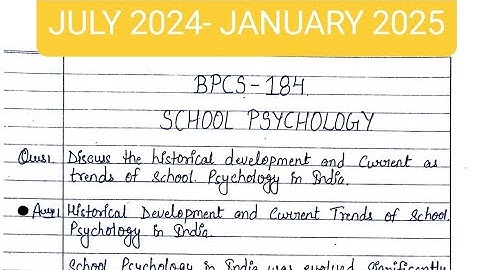 JULY 2024- JANUARY 2025
BPCS-184
SCHOOL PSYCHOLOGY
Ques1. Discuss the historical development and Current as
trends of school Psychology in India.
Ans1 Historical Development and Current Trends of School
Psychology in India.
School Psychology in India was evolved significantly